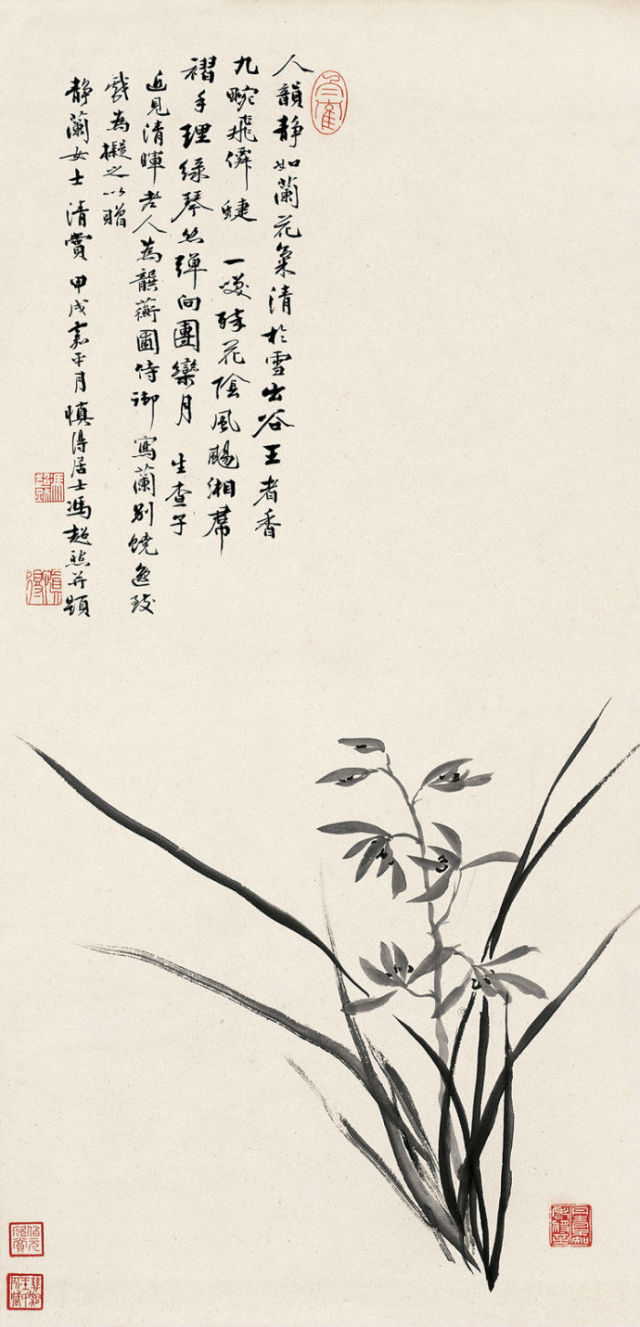 人韻静如蘭花氣清於雪出谷王者香
九畹飛僊蜨一笑降花陰風颺湘帬
褶手理綠琴絲彈向團欒月 生查子
近見清暉老人為韻蘅圖侍御寫蘭别饒逸致
戲為擬之以贈
静蘭女士清賞 甲戌嘉平月慎得居士馮超然并題